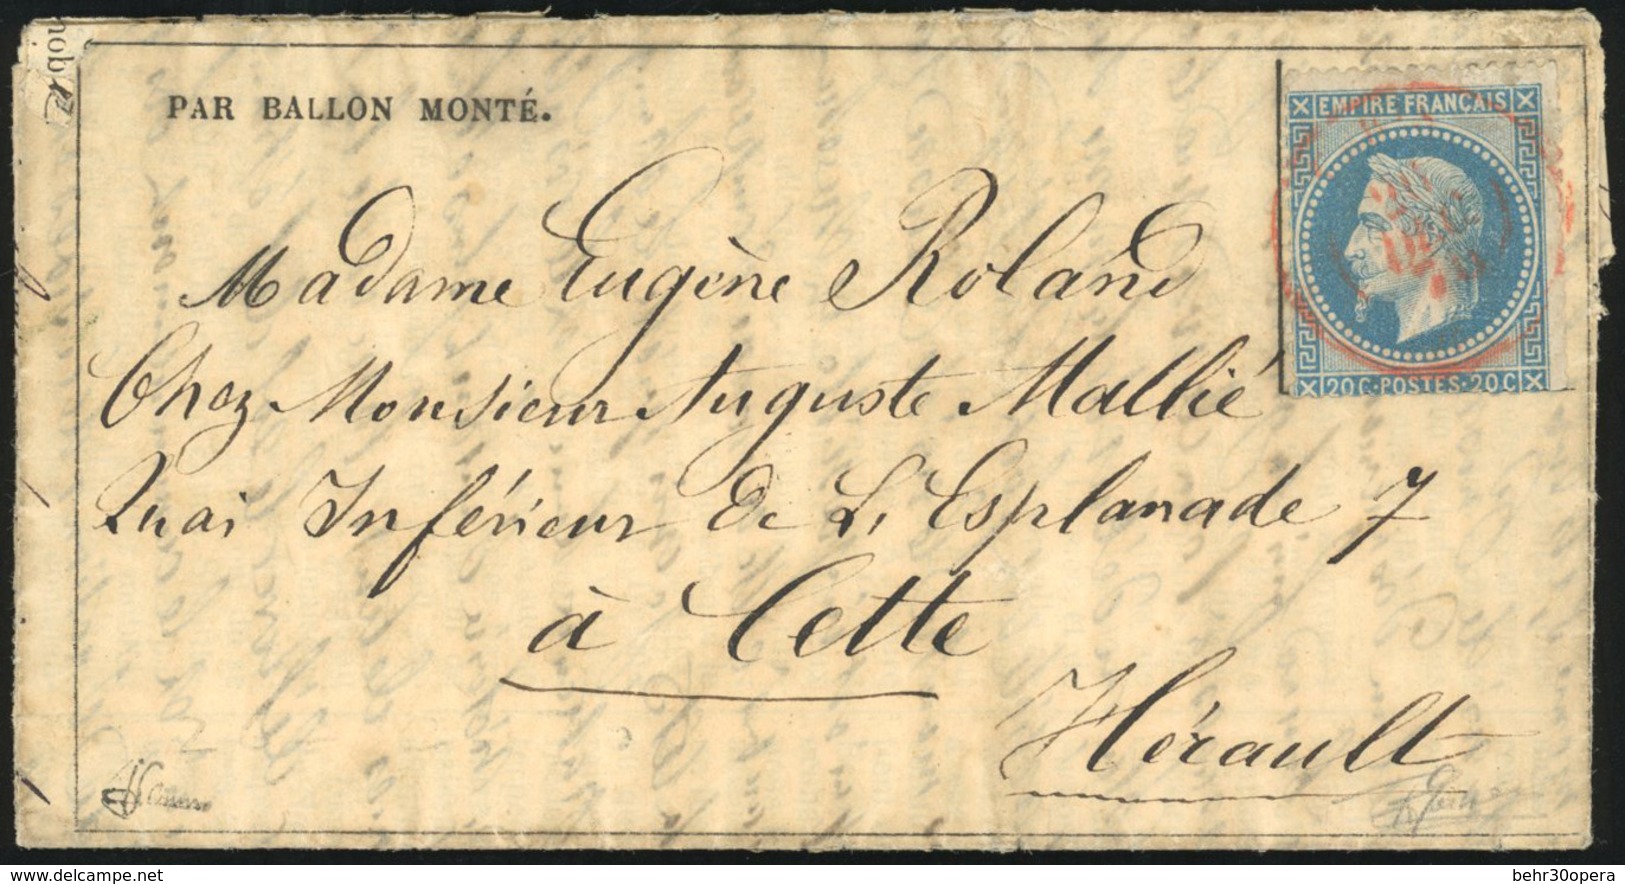 PAR BALLON MONTÉ.
EMPIRE FRANÇAIS
20 C · POSTES · 20 C
Madame Eugène Roland
Chez Monsieur Auguste Mallié
Quai Inférieur De L'Esplanade 7
à Cette
Hérault
delcampe.net
behr30opera